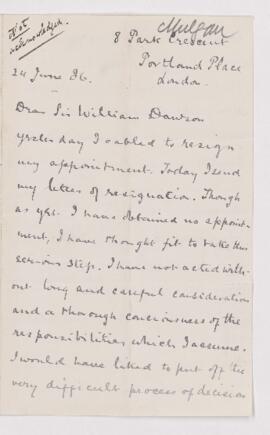 Not
acknowledged
Mulgan
8 Park Crescent
Portland Place
London.
24 June 86.
Dear Sir William Dawson
yesterday I cabled to resign
my appointment. Today I send
my letter of resignation. Though
as yet I have obtained no appoint-
ment, I have thought fit to take this
serious step. I have not acted with-
out long and careful consideration
and a thorough conciousness of the
responsibilities which I assume.
I would have liked to put off the
very difficult process of decision